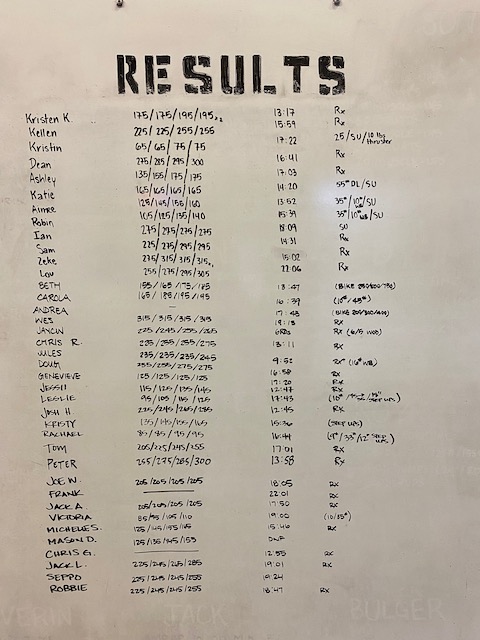 RESULTS
Kristen K. 175/175/195/195 13:17 Rx
Kellen 225/225/255/255 15:59 Rx
Kristin 65/65/75/75 17:22 25/SU/10 lbs thruster
Dean 275/285/295/300 16:41 Rx
Ashley 135/155/175/175 17:03 Rx
Katie 165/165/165/165 14:20 55# DL/SU
Aimee 125/145/150/160 13:52 35#/10#/SU
Robin 105/125/135/140 15:39 35#/10#/SU
Ian 275/275/275/275 18:09 SU
Sam 225/275/295/295 14:31 Rx
Zeke 275/315/315/315 15:02 Rx
Lou 255/275/295/305 22:06 Rx
BETH 155/165/175/185 13:47
CAROLA 165/185/195/195 16:39
ANDREA — 17:48
WES 315/315/315/315 19:18 Rx
JAYCIN 225/245/255/265 Rx
CHRIS R. 235/255/255/275 13:11 Rx
JULES 235/235/235/245
DOUG 255/255/275/275 9:52
GENEVIEVE 125/125/125/125 16:58 Rx
JESS H 115/125/135/145 Rx
LESLIE 95/105/115/125 17:43
JOSH H 225/245/265/285 12:45 Rx
KRISTY 135/145/155/165 15:36 (STEP UPS)
RACHAEL 85/85/95/95 16:44
TOM 205/225/245/255 17:01 Rx
PETER 255/275/285/300 13:58 Rx
JOE W. 205/205/205/205 18:05 Rx
FRANK — 22:01 Rx
JACK A 205/205/205/205 17:50 Rx
VICTORIA 85/95/105/110 19:00 (10/35#)
MICHELLE S. 125/145/155/165 15:46 Rx
MASON D. 125/135/145/155 DNF
CHRIS G. — 12:55 Rx
JACK L. 225/245/265/285 19:01 Rx
SEPPO 225/245/245/255 10:24
ROBBIE 225/245/245/255 18:47 Rx
JACK BULGER